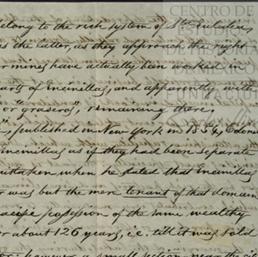 CENTRO DE
belong to the rich system of Sta. Eulalia,
is the latter, as they approach the right
or mines have actually been worked in
parts of Encinillas, and apparently with
or "graseros", remaining there;
", published in New York in 1854, Edom
Encinillas as if they had been separate
mistaken, when he stated that Encinillas
r was but the mere tenant of that domain
pacific possession of the same wealthy
or about 126 years, i.e. till it was sold
however, a small portion near the